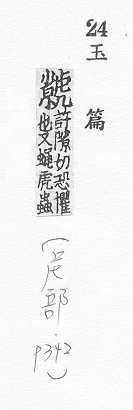 24 玉篇
虩許隙切恐懼
也又蠅虎蟲
(虎部 p342)